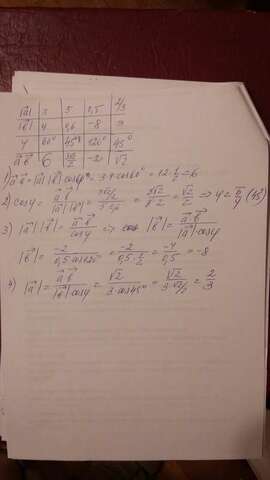 |a⃗| 3 5 0,5 2/3
|b⃗| 4 0,6 -8 3
φ 60° 45° 120° 45°
a⃗ b⃗ 6 -2 √2
1) a⃗ b⃗ = |a⃗| |b⃗| cosφ = 3·4·cos60° = 12·½ = 6
2) cosφ = a⃗ b⃗ / |a⃗| |b⃗| = = = √2/2 ⇒ φ = π/4 (45°)
3) |a⃗| |b⃗| = a⃗ b⃗ / cosφ ⇒ |b⃗| = a⃗ b⃗ / |a⃗| cosφ
|b⃗| = -2 / 0,5·cos120° = -2 / 0,5·½ = -4 / 0,5 = -8
4) |a⃗| = a⃗ b⃗ / |b⃗| cosφ = √2 / 3·cos45° = √2 / 3·√2/2 = 2/3